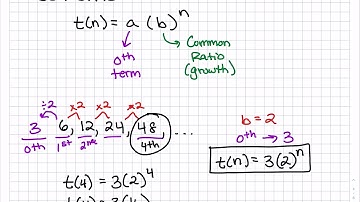 t(n) = a (b)ⁿ
0th term
Common Ratio (growth)
÷2 x2 x2 x2
3 6, 12, 24, 48, ...
0th 1st 2nd 4th
b = 2
0th → 3
t(n) = 3(2)ⁿ
t(4) = 3(2)⁴